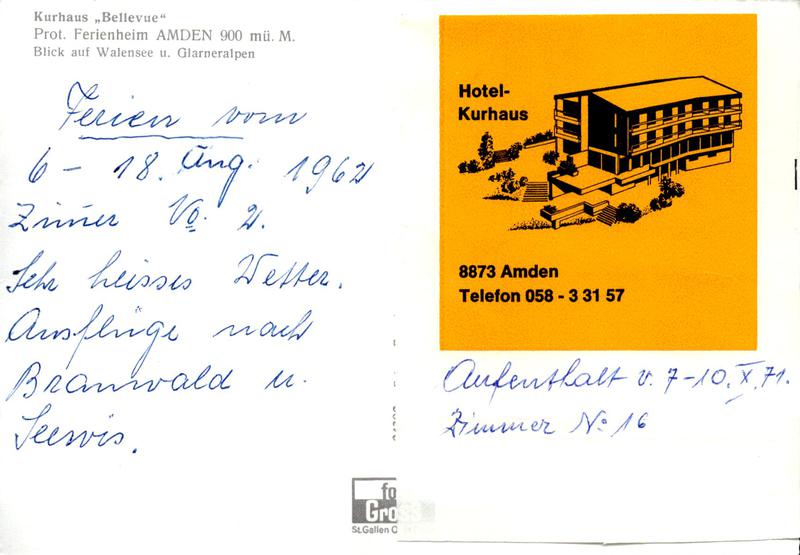 Kurhaus „Bellevue“
Prot. Ferienheim AMDEN 900 mü. M.
Blick auf Walensee u. Glarneralpen
Ferien vom
6 - 18. Aug. 1962
Zim̄er No. 2.
Sehr heisses Wetter.
Ausflüge nach
Braunwald u.
Seewis.
Hotel-
Kurhaus
8873 Amden
Telefon 058 - 3 31 57
Aufenthalt v. 7-10. X. 71.
Zimmer No 16
fo
Gross
St.Gallen